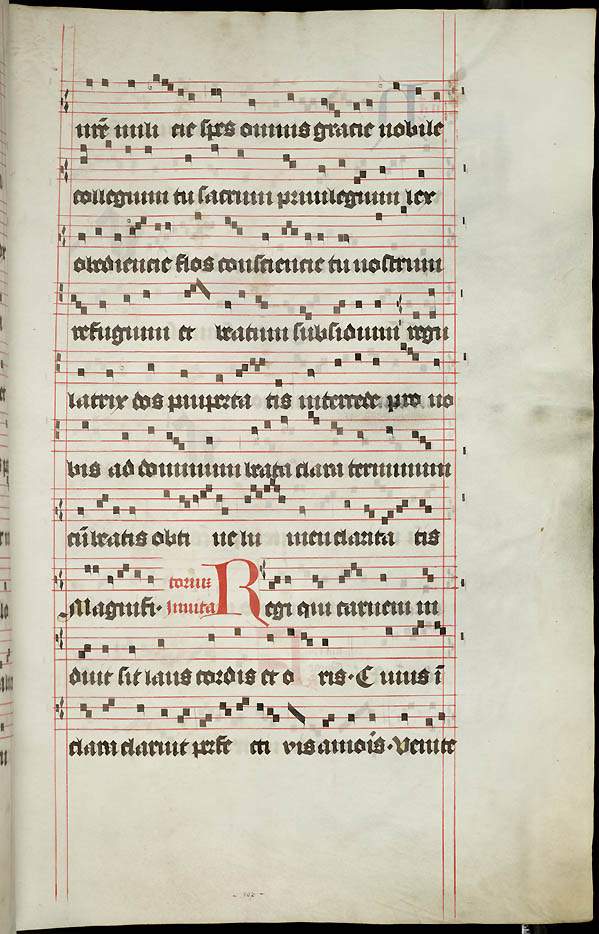 nr̄e mili cie sp̄es omnis gracie nobile
collegium tu sacrum priuilegium lex
obediencie flos consciencie tu nostrum
refugium et beatum subsidium regu
latrix dos pauperta tis intercede pro no
bis ad dominum beata clara terminum
cū beatis obti ne lu men clarita tis
Magnifi. torium Inuita Regi qui carnem in
duit sit laus cordis et o ris. Cuius ī
clara claruit perfe cti vis amoris. Venite